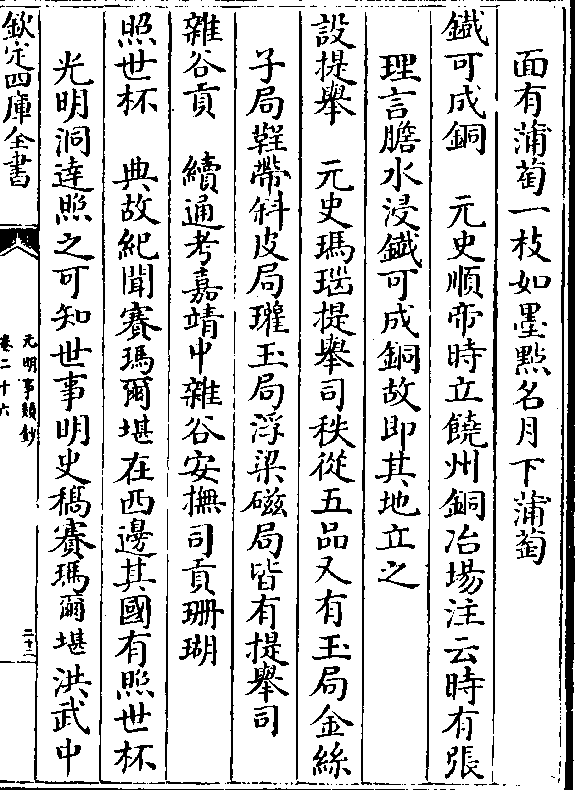 面有蒲萄一枝如墨㸃名月下蒲萄
鐵可成銅　元史順帝時立饒州銅冶場注云時有張
理言膽水浸鐵可成銅故即其地立之
設提舉　元史瑪瑙提舉司秩從五品又有玉局金絲
子局鞓帶斜皮局瓘玉局浮梁磁局皆有提舉司
雜谷貢　續通考嘉靖中雜谷安撫司貢珊瑚
照世杯　典故紀聞賽瑪爾堪在西邊其國有照世杯
光明洞達照之可知世事明史稿賽瑪爾堪洪武中
欽定四庫全書
元明事類鈔
卷二十六
二十二